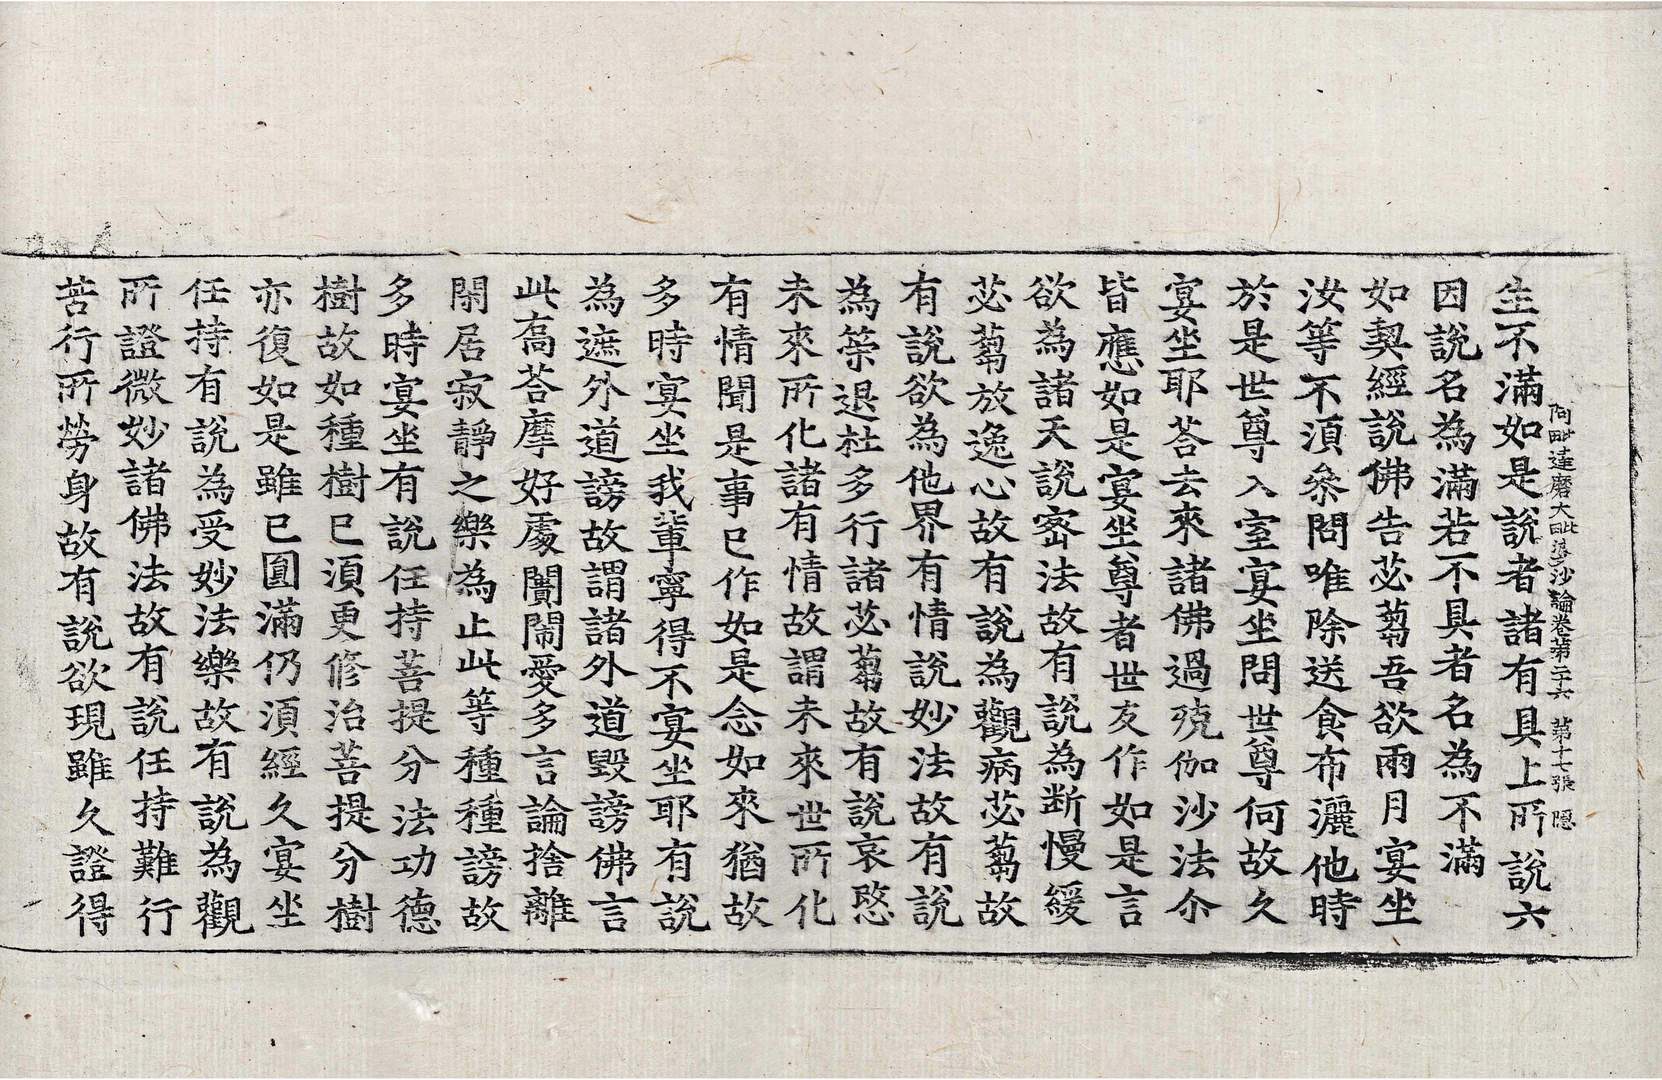 阿毗達磨大毗婆沙論卷第二十六 第十七張 隱
生不滿如是說者諸有具上所說六
因說名為滿若不具者名為不滿
如契經說佛告苾蒭吾欲兩月宴坐
汝等不湏叅問唯除送食布灑他時
於是世尊入室宴坐問世尊何故久
宴坐耶荅去來諸佛過殑伽沙法尒
皆應如是宴坐尊者世友作如是言
欲為諸天說密法故有說為斷慢緩
苾蒭放逸心故有說為觀病苾蒭故
有說欲為他界有情說妙法故有說
為榮退杜多行諸苾蒭故有說哀愍
未來所化諸有情故謂未來世所化
有情聞是事已作如是念如來猶故
多時宴坐我輩寧得不宴坐耶有說
為遮外道謗故謂諸外道毀謗佛言
此喬荅摩好處闠閙愛多言論捨離
閑居寂靜之樂為止此等種種謗故
多時宴坐有說任持菩提分法功德
樹故如種樹已湏更修治菩提分樹
亦復如是雖已圓滿仍湏經久宴坐
任持有說為受妙法樂故有說為觀
所證微妙諸佛法故有說任持難行
苦行所勞身故有說欲現雖久證得